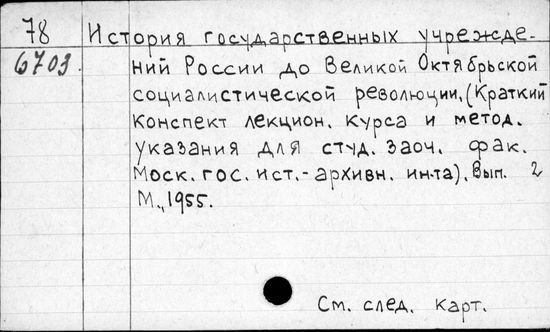 78 История государственных учрежде-
6703. ний России до Великой Октябрьской
социалистической революции. (Краткий
конспект лекцион. курса и метод.
указания для студ. заоч. фак.
Моск. гос. ист.-архивн. ин-та). Вып. 2
М., 1955.
См. след. карт.